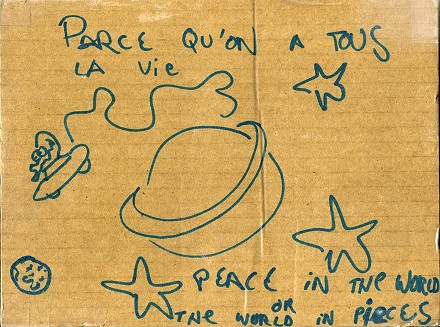 PARCE QU'ON A TOUS
LA Vie
PEACE iN THE WORLD
OR
THE WORLD iN PiECES